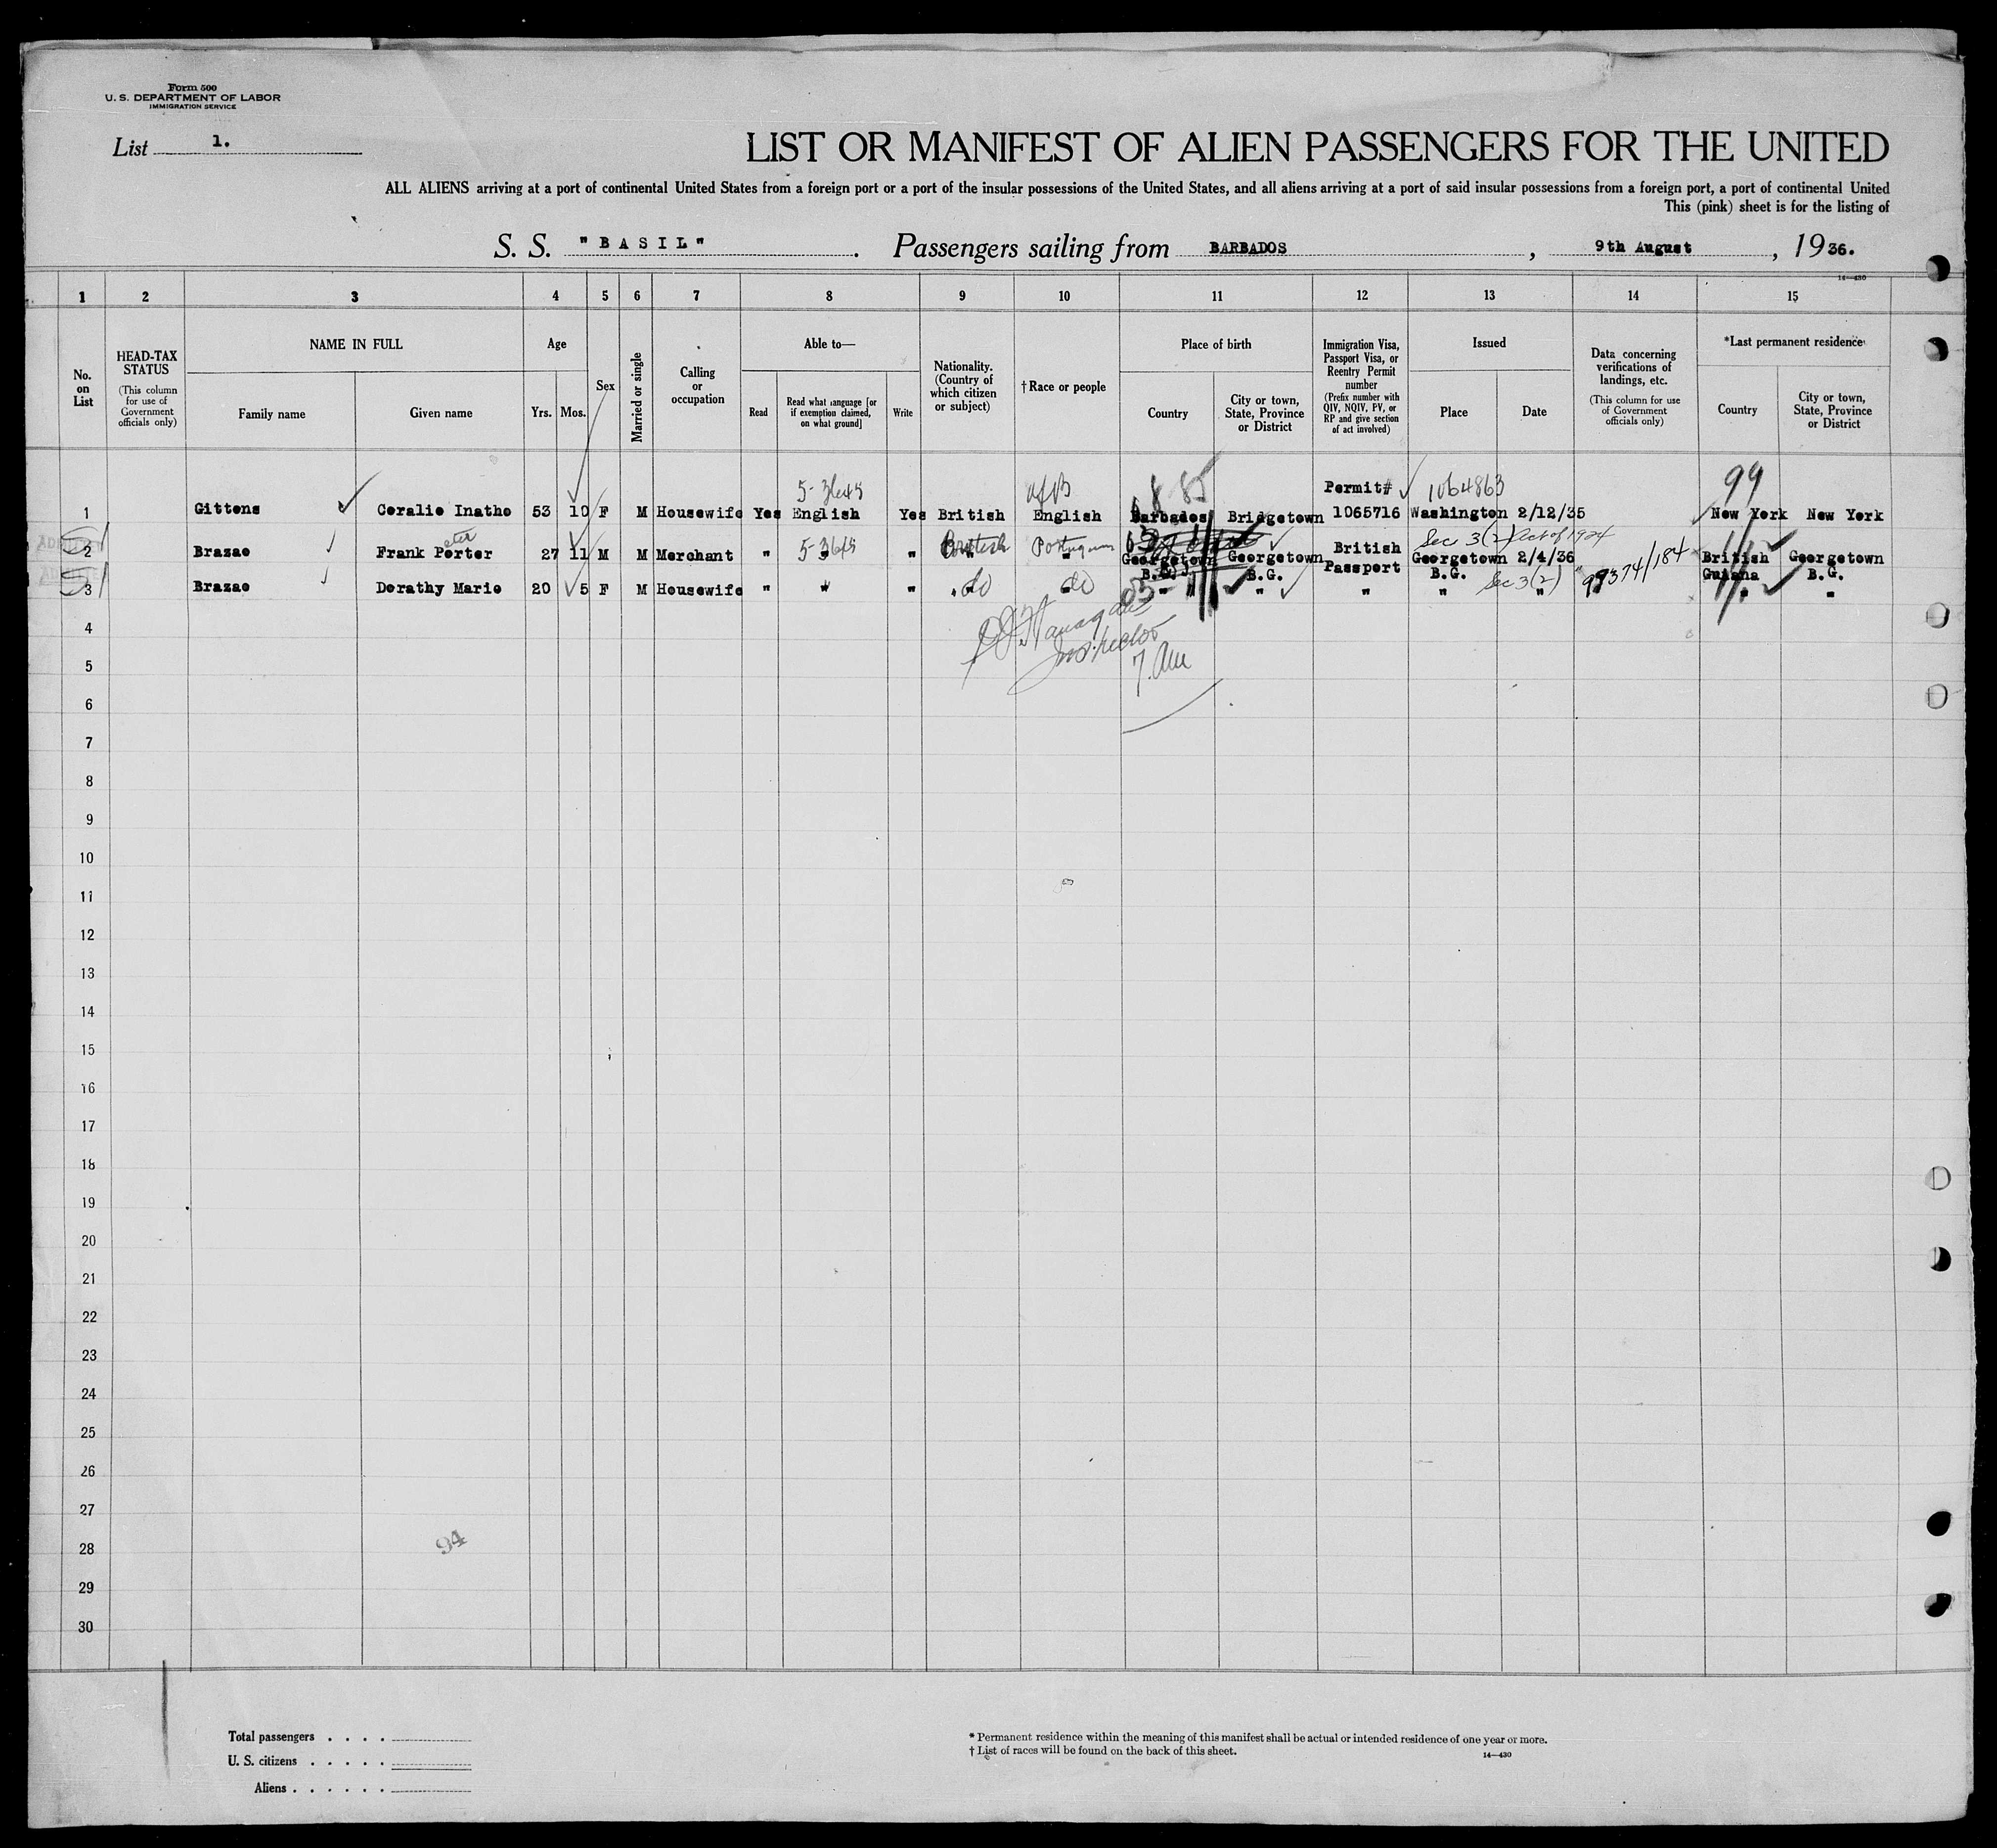 Form 500
U. S. DEPARTMENT OF LABOR
IMMIGRATION SERVICE
List 1.
LIST OR MANIFEST OF ALIEN PASSENGERS FOR THE UNITED
ALL ALIENS arriving at a port of continental United States from a foreign port or a port of the insular possessions of the United States, and all aliens arriving at a port of said insular possessions from a foreign port, a port of continental United
This (pink) sheet is for the listing of
S. S. "BASIL". Passengers sailing from BARBADOS, 9th August, 1936.
14—430
1 2 3 4 5 6 7 8 9 10 11 12 13 14 15
No. on List
HEAD-TAX STATUS
(This column for use of Government officials only)
NAME IN FULL
Family name
Given name
Age
Yrs.
Mos.
Sex
Married or single
Calling or occupation
Able to—
Read
Read what language [or if exemption claimed, on what ground]
Write
Nationality. (Country of which citizen or subject)
†Race or people
Place of birth
Country
City or town, State, Province or District
Immigration Visa, Passport Visa, or Reentry Permit number
(Prefix number with QIV, NQIV, PV, or RP and give section of act involved)
Issued
Place
Date
Data concerning verifications of landings, etc.
(This column for use of Government officials only)
*Last permanent residence
Country
City or town, State, Province or District
5-3645 Permit# 1064863 99
1 Gittens Coralie Inatho 53 10 F M Housewife Yes English Yes British English Barbados Bridgetown 1065716 Washington 2/12/35 New York New York
eter Sec 3(2) Act of 1924
2 Brazao Frank Porter 27 11 M M Merchant " 5-3645 " British Portuguese Georgetown B.G. Georgetown B.G. British Passport Georgetown B.G. 2/4/36 99374/184 British Guiana Georgetown B.G.
3 Brazao Dorathy Marie 20 5 F M Housewife " " " do do " " " " Sec 3(2) " " "
Inspector
7. AM
4
5
6
7
8
9
10
11
12
13
14
15
16
17
18
19
20
21
22
23
24
25
26
27
28
29
30
94
Total passengers . . . .
U. S. citizens . . . . .
Aliens . . . . . .
* Permanent residence within the meaning of this manifest shall be actual or intended residence of one year or more.
† List of races will be found on the back of this sheet.
14—430